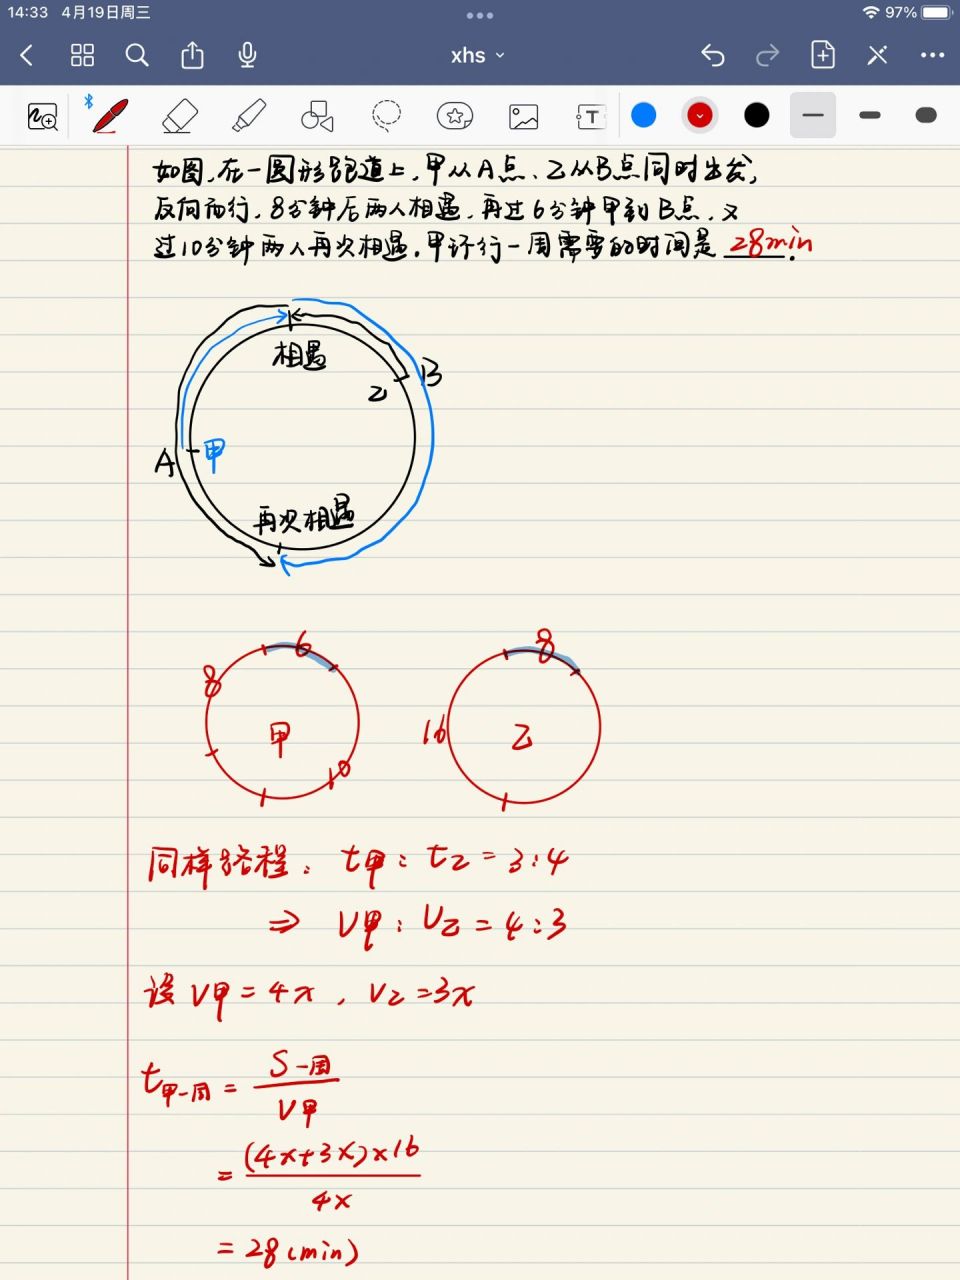 14:33 4月19日周三
97%
xhs
T
如图,在一圆形跑道上,甲从A点、乙从B点同时出发,
反向而行,8分钟后两人相遇,再过6分钟甲到B点,又
过10分钟两人再次相遇,甲环行一周需要的时间是 28min.
相遇
B
乙
A 甲
再次相遇
6 8
8
甲 16 乙
10
同样路程: t甲:t乙=3:4
⇒ V甲:V乙=4:3
设V甲=4x,V乙=3x
t甲一周=S一周/V甲
=(4x+3x)×16/4x
=28(min)